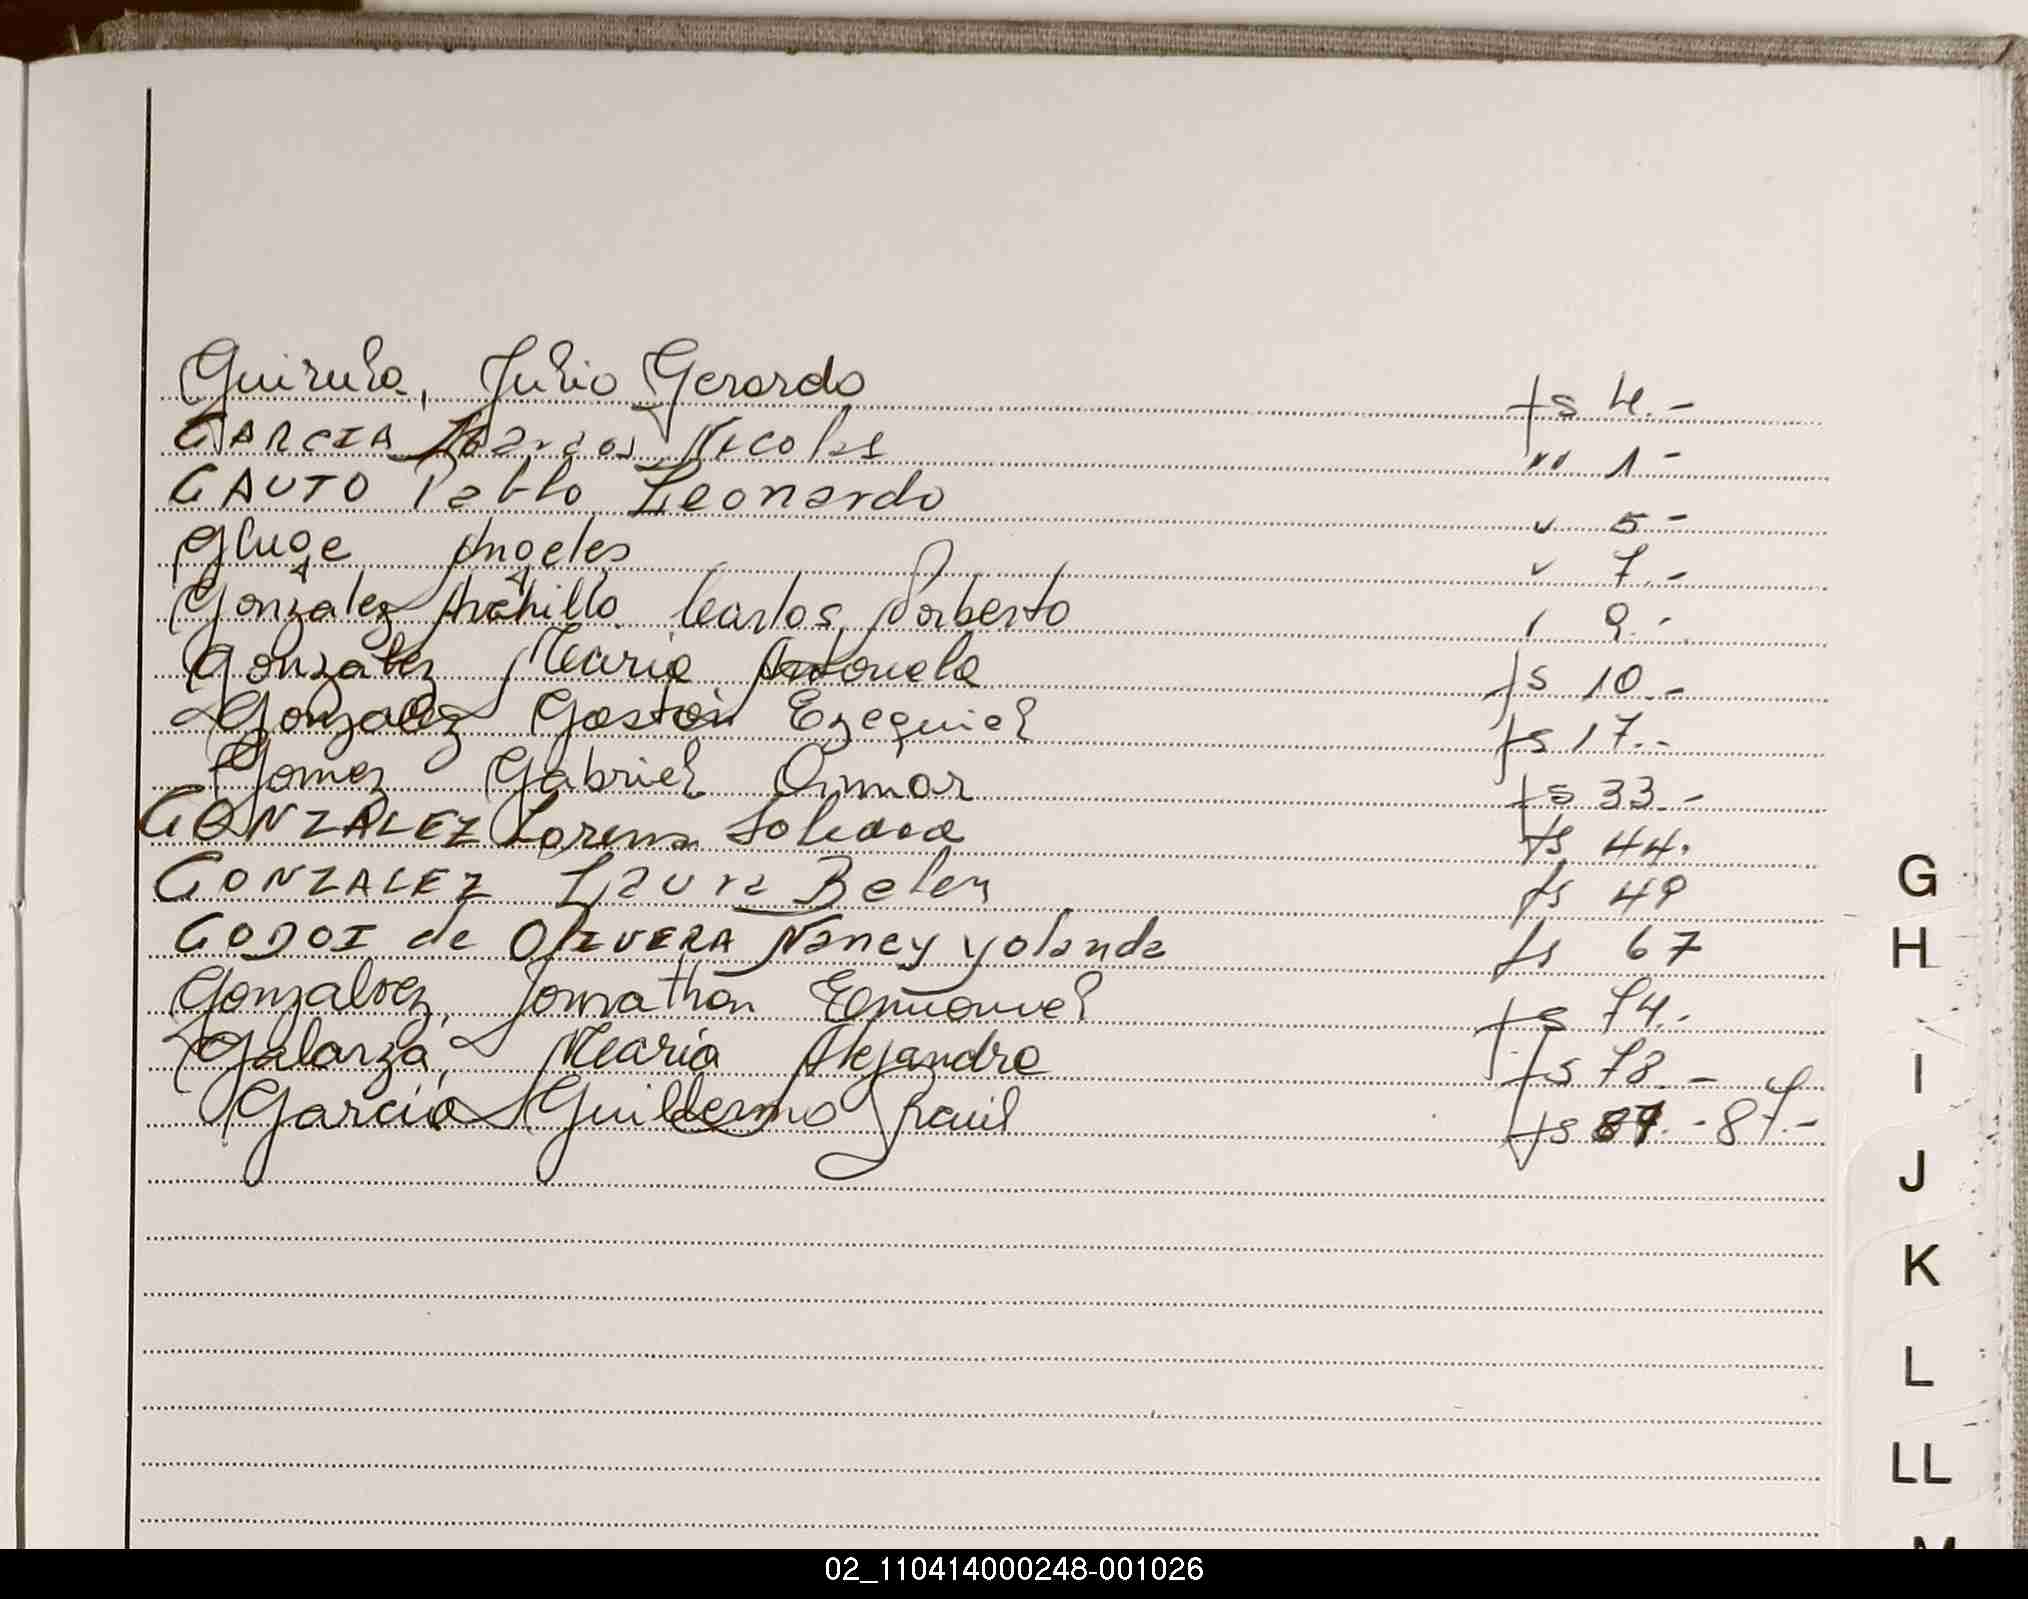 Guirula, Julio Gerardo fs 4.-
GARCIA Marcos Nicolas " 1-
GAUTO Pablo Leonardo " 5-
Gluge Angeles " 7.-
Gonzalez Archillo Carlos Norberto " 9.-
Gonzalez Maria Antonela fs 10.-
Gonzalez Gastón Ezequiel fs 17.-
Gomez Gabriel Omar fs 33.-
GONZALEZ Lorena Soledad fs 44.
GONZALEZ Laura Belen fs 49
GODOI de OLIVERA Nancy Yolanda fs 67
Gonzalvez, Jonathan Emanuel fs 74.-
Galarza, Maria Alejandra fs 78.-
Garcia Guillermo Raul fs 87.-87.-
G
H
I
J
K
L
LL
M
02_110414000248-001026